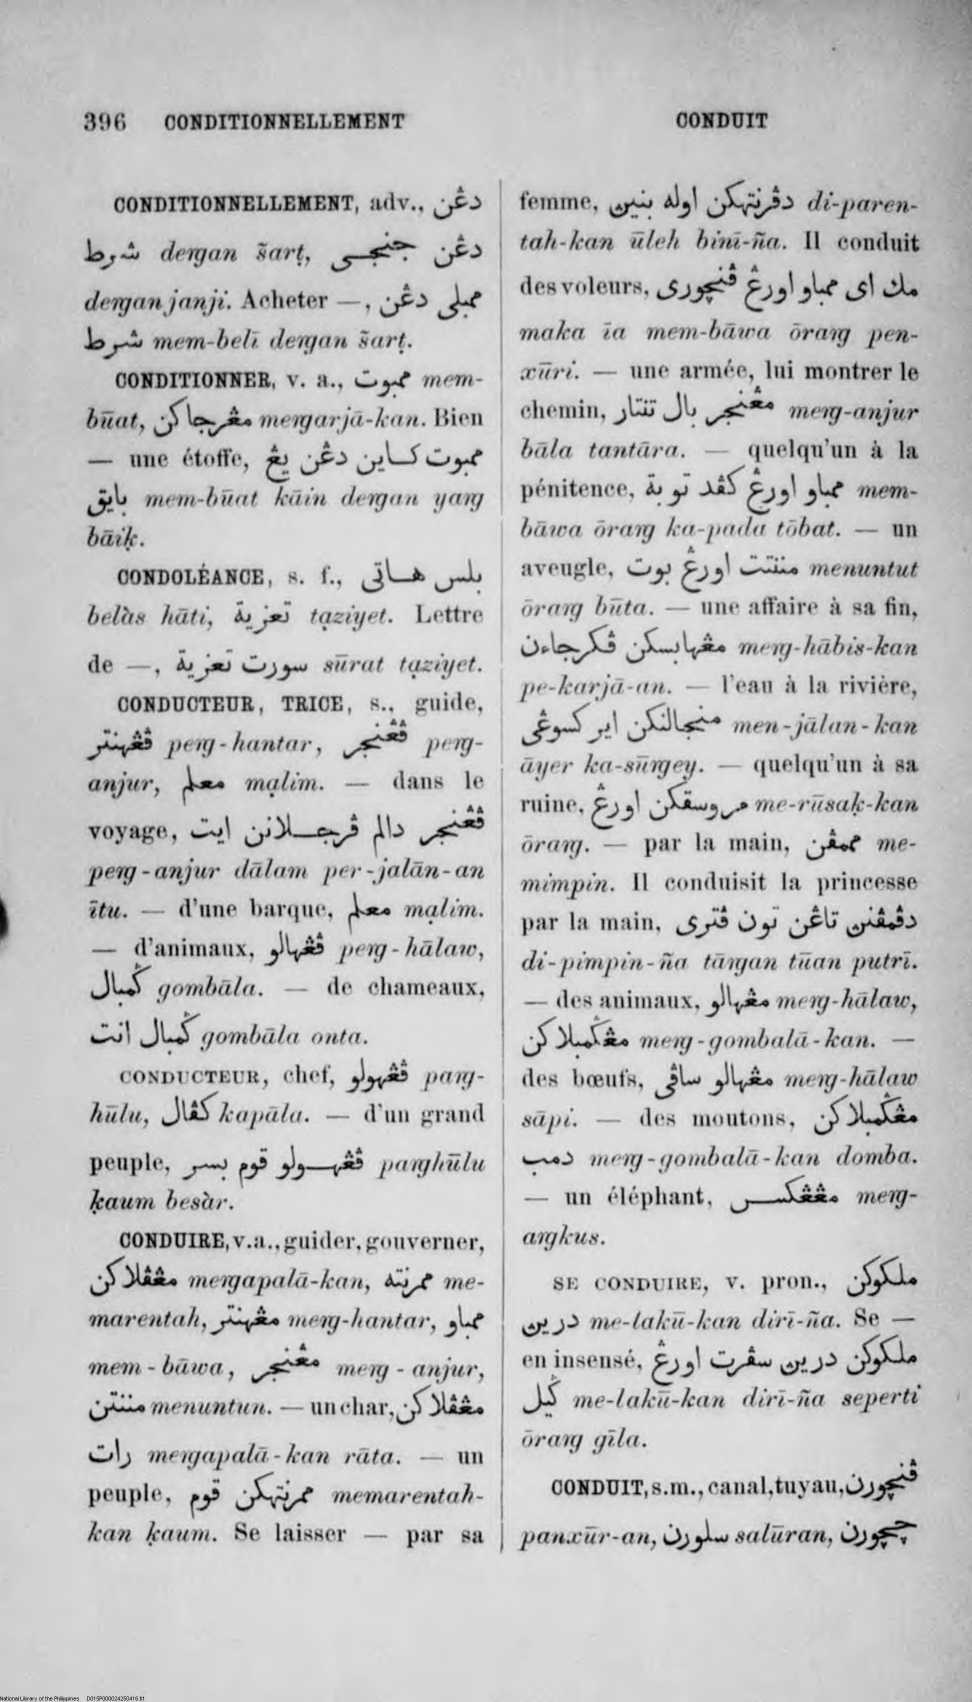 396 CONDITIONNELLEMENT CONDUIT
CONDITIONNELLEMENT, adv., دڠن
شرط deṅgan šarṭ, دڠن جنجي
deṅgan janji. Acheter —, ممبلي دڠن
شرط mem-belī deṅgan šarṭ.
CONDITIONNER, v. a., ممبوت mem-
būat, مڠرجاکن meṅgarjā-kan. Bien
— une étoffe, ممبوت کاين دڠن يڠ
بايق mem-būat kāin deṅgan yaṅg
bāiḳ.
CONDOLÉANCE, s. f., بلس هاتي
belàs hāti, تعزية tạziyet. Lettre
de —, سورت تعزية sūrat tạziyet.
CONDUCTEUR, TRICE, s., guide,
ڤڠهنتر peṅg-hantar, ڤڠنجر peṅg-
anjur, معلم mạlim. — dans le
voyage, ڤڠنجر دالم ڤرجلانن ايت
peṅg-anjur dālam per-jalān-an
ītu. — d'une barque, معلم mạlim.
— d'animaux, ڤڠهالو peṅg-hālaw,
ݢمبال gombāla. — de chameaux,
ݢمبال انت gombāla onta.
CONDUCTEUR, chef, ڤڠهولو paṅg-
hūlu, کڤال kapāla. — d'un grand
peuple, ڤڠهولو قوم بسر paṅghūlu
ḳaum besàr.
CONDUIRE, v.a., guider, gouverner,
مڠڤلاکن meṅgapalā-kan, ممرنته me-
marentah, مڠهنتر meṅg-hantar, ممباو
mem-bāwa, مڠنجر meṅg-anjur,
مننتن menuntun. — un char, مڠڤلاکن
رات meṅgapalā-kan rāta. — un
peuple, ممرنتهکن قوم memarentah-
kan ḳaum. Se laisser — par sa
femme, دڤرنتهکن اوله بنيڽ di-paren-
tah-kan ūleh binī-ña. Il conduit
des voleurs, مك اي ممباو اورڠ ڤنچوري
maka īa mem-bāwa ōraṅg pen-
xūri. — une armée, lui montrer le
chemin, مڠنجر بال تنتار meṅg-anjur
bāla tantāra. — quelqu'un à la
pénitence, ممباو اورڠ کڤد توبة mem-
bāwa ōraṅg ka-pada tōbat. — un
aveugle, مننتت اورڠ بوت menuntut
ōraṅg būta. — une affaire à sa fin,
مڠهابسکن ڤکرجاءن meṅg-hābis-kan
pe-karjā-an. — l'eau à la rivière,
منجالنکن اير کسوڠي men-jālan-kan
āyer ka-sūṅgey. — quelqu'un à sa
ruine, مروسقکن اورڠ me-rūsaḳ-kan
ōraṅg. — par la main, ممڤن me-
mimpin. Il conduisit la princesse
par la main, دڤمڤنڽ تاڠن تون ڤتري
di-pimpin-ña tāṅgan tūan putrī.
— des animaux, مڠهالو meṅg-hālaw,
مڠݢمبلاکن meṅg-gombalā-kan. —
des bœufs, مڠهالو ساڤي meṅg-hālaw
sāpi. — des moutons, مڠݢمبلاکن
دمب meṅg-gombalā-kan domba.
— un éléphant, مڠڠکس meṅg-
aṅgkus.
SE CONDUIRE, v. pron., ملکوکن
دريڽ me-lakū-kan dirī-ña. Se —
en insensé, ملکوکن دريڽ سڤرت اورڠ
ݢيل me-lakū-kan dirī-ña seperti
ōraṅg gīla.
CONDUIT, s.m., canal, tuyau, ڤنچورن
panxūr-an, سلورن salūran, چچورن
National Library of the Philippines